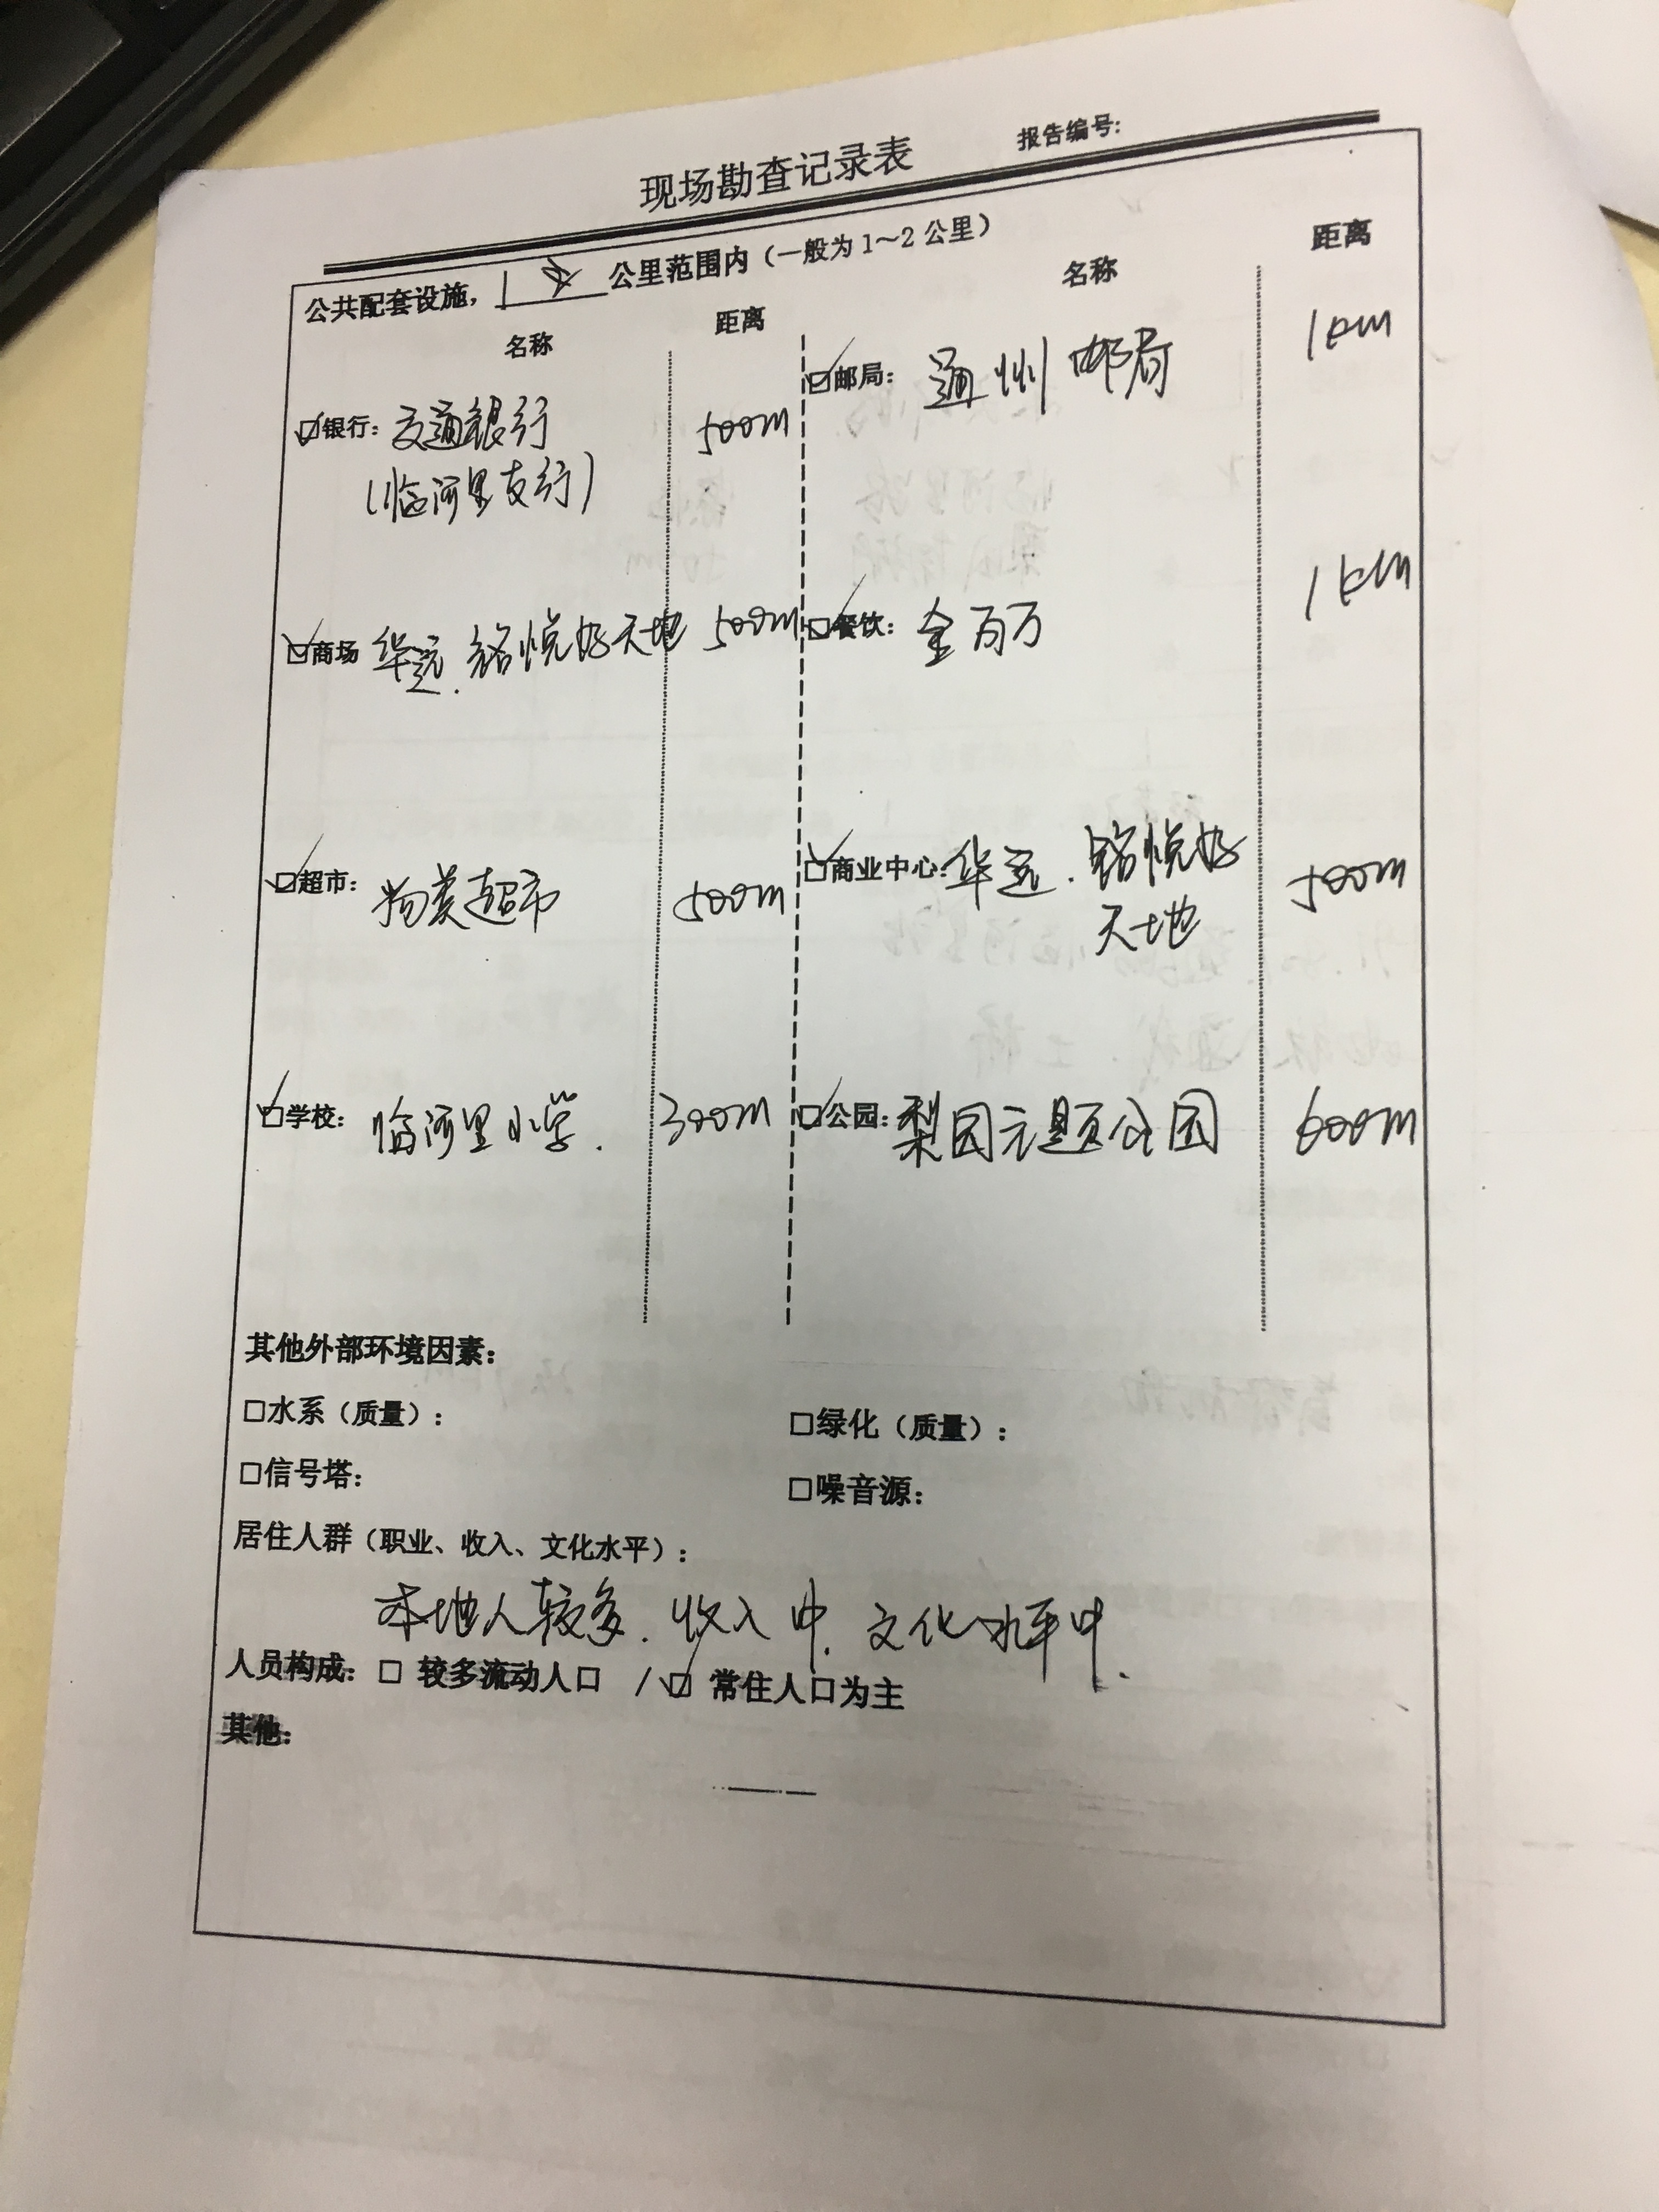 现场勘查记录表
报告编号:
公共配套设施，1 公里范围内（一般为1～2公里）
名称 距离 名称 距离
☑银行：交通银行 500m
（临河里支行）
☑邮局：通州邮局 1km
☑商场 华远.铭悦好天地 500m
☑餐饮：金百万 1km
☑超市：物美超市 500m
☑商业中心：华远.铭悦好 500m
天地
☑学校：临河里小学. 300m
☑公园：梨园主题公园 600m
其他外部环境因素：
□水系（质量）：
□绿化（质量）：
□信号塔：
□噪音源：
居住人群（职业、收入、文化水平）：
本地人较多.收入中.文化水平中.
人员构成：□ 较多流动人口 /☑ 常住人口为主
其他：